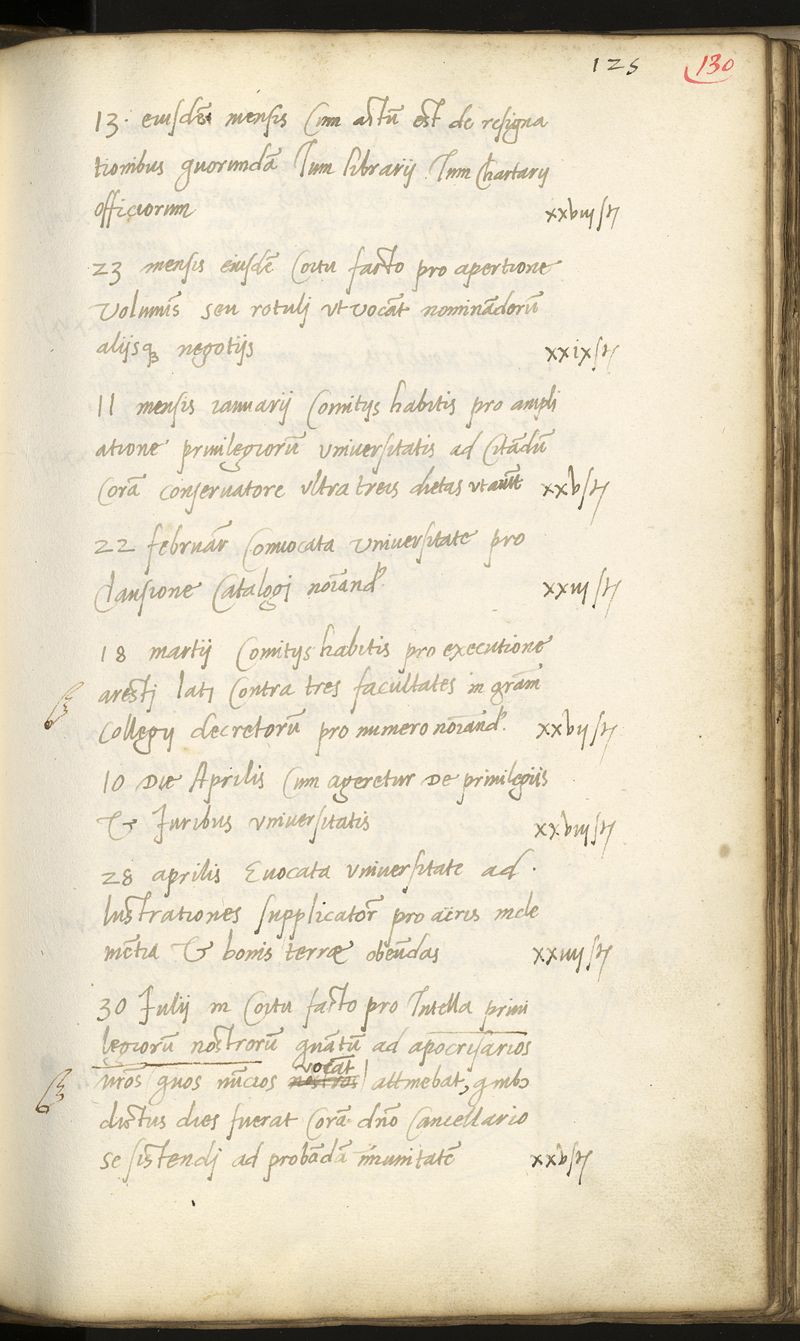 125 130
13. eiusdē mensis Cum actū est de resigna
tionibus quorundā Tum librarij Tum Chartarij
officiorum xxviij sꝭ
23 mensis eiusdē Coitu facto pro apertione
Volumīs seu rotulj vt vocāt nominādorū
alijsqꝫ negotijs xxix sꝭ
11 mensis ianuarij Comitijs habitis pro ampli
atione priuilegiorū vniuersitatis ad Citādū
Corā conseruatore vltra treis dietas vt aiūt xxv sꝭ
22 februār Conuocata vniuersitate pro
Clausione Catalogj noīand xxiij sꝭ
18 martij Comitijs habitis pro executione
arestj latj Contra tres facultates in grām
Collegij decretorū pro numero noīand. xxvij sꝭ
10 Die Aprilis Cum ageretur De priuilegiis
& Juribus vniuersitatis xxviij sꝭ
28 aprilis Euocata vniuersitate ad
lustrationes supplicator pro aëris incle
mētia & bonis terræ obeūdas xxiiij sꝭ
30 Julij in Coitu facto pro Tutella priui
legiorū nostrorū quātū ad apocrisarios
vocāt
nrōs quos nūcios nostros attinebat, qͥmbꝯ
dictus dies fuerat Corā dnō Cancellario
se sistendj ad probādā īmunitatē xxv sꝭ